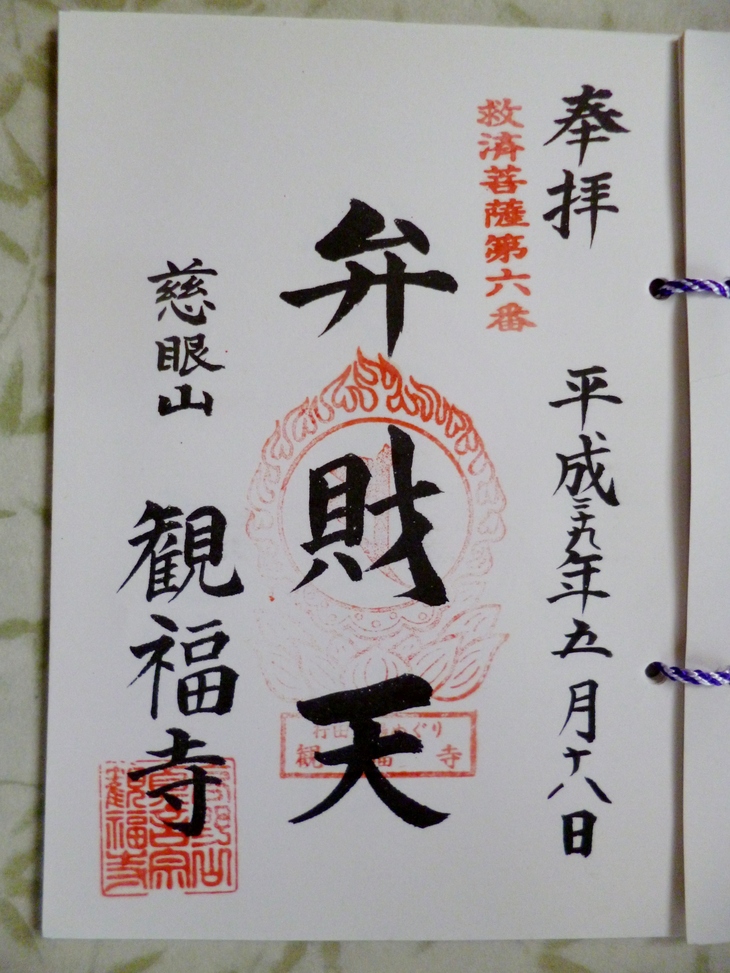 奉拝
平成二十九年五月十八日
救済菩薩第六番
弁財天
観福寺
慈眼山
観福寺
観福寺